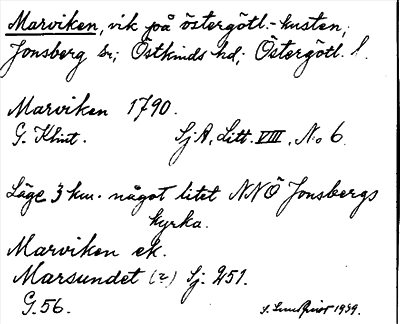 Marviken, vik på östergötl.-kusten,
Jonsberg sn; Östkinds hd; Östergötl. l.
Marviken 1790.
G. Klint. Sj A, Litt. VIII, No 6.
Läge 3 km. något litet NNÖ Jonsbergs
kyrka.
Marviken ek.
Marsundet (2) Sj. 251.
G. 56.
1939.